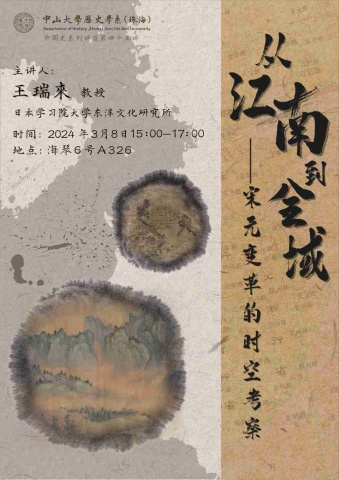 中山大學歷史學系(珠海)
Department of History (Zhuhai), Sun Yat-sen University
主讲人:
王瑞來 教授
日本学习院大学东洋文化研究所
时间: 2024年3月8日15:00—17:00
地点: 海琴6号A326
从江南到全域
——宋元变革的时空考察